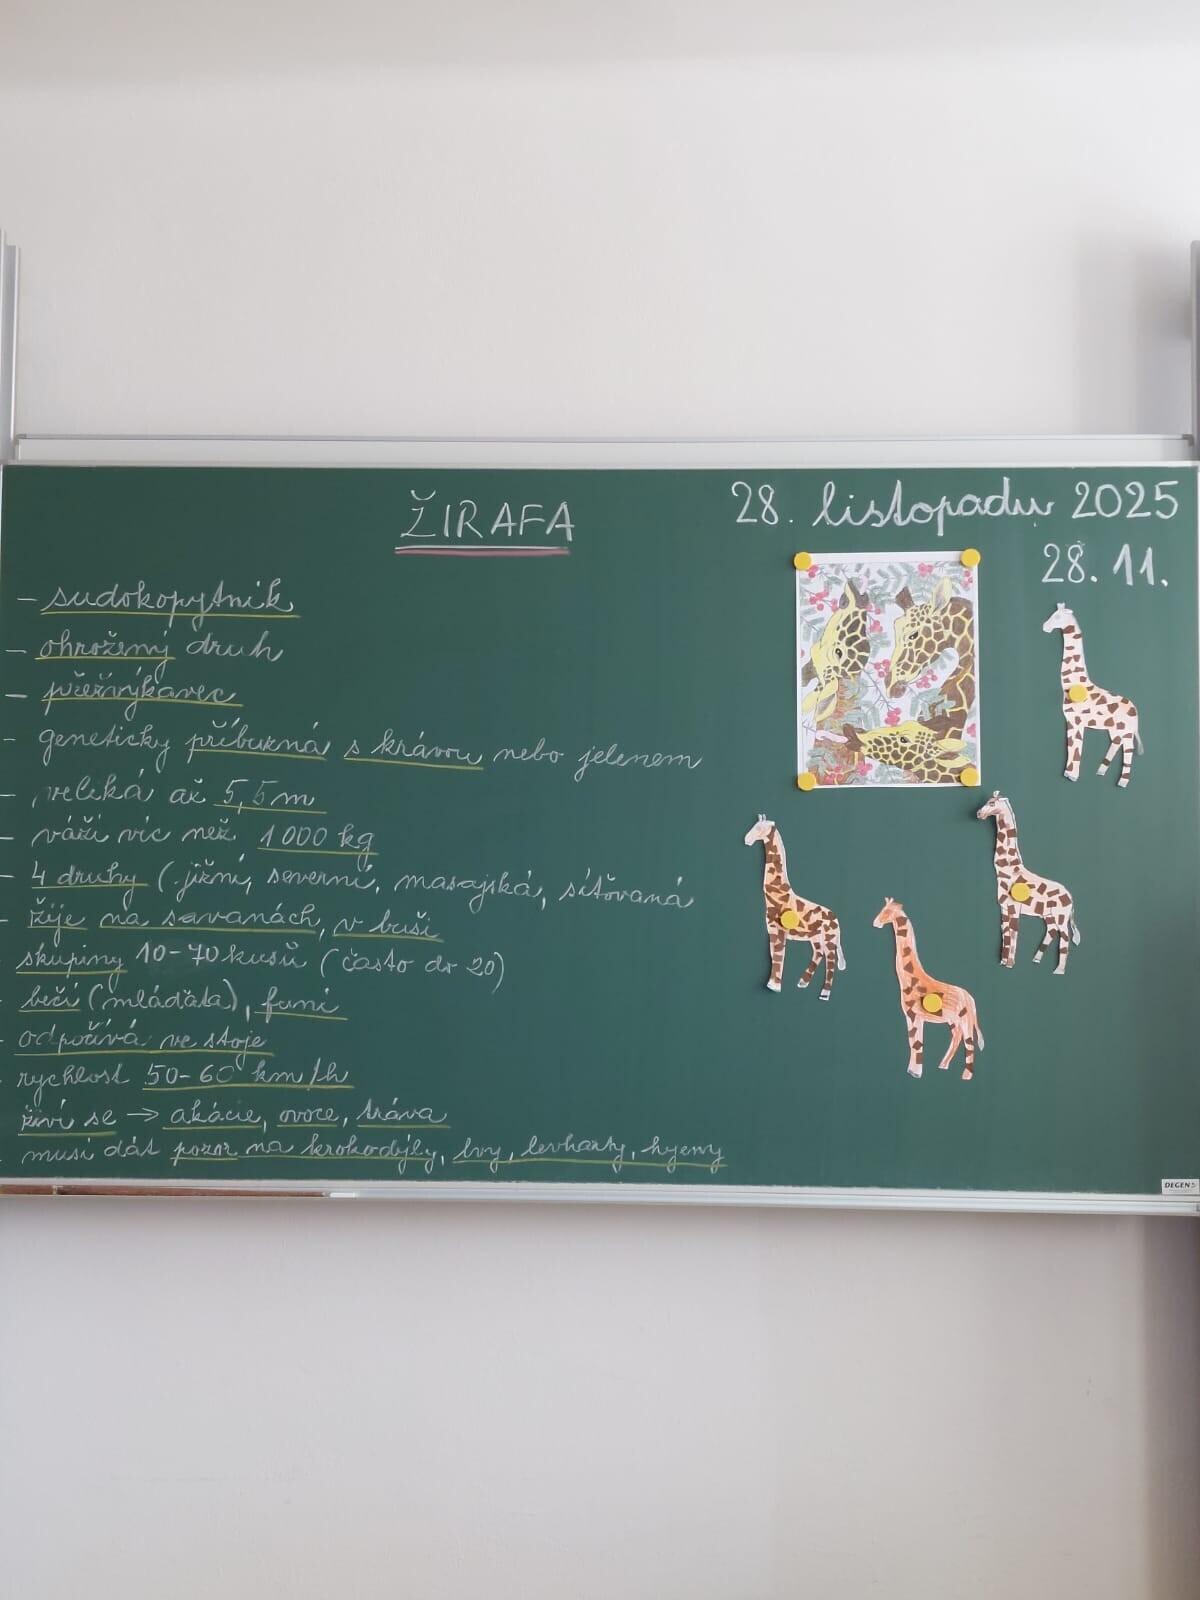 ŽIRAFA
28. listopadu 2025
28. 11.
– sudokopytník
– ohrožený druh
– přežvýkavec
– geneticky příbuzná s krávou nebo jelenem
– veliká až 5,5 m
– váží víc než 1000 kg
– 4 druhy (jižní, severní, masajská, síťovaná
– žije na savanách, v buši
skupiny 10–70 kusů (často do 20)
- bečí (mláďata), funí
- odpočívá ve stoje
- rychlost 50–60 km/h
živí se → akácie, ovoce, tráva
- musí dát pozor na krokodýly, lvy, levharty, hyeny
DEGEN